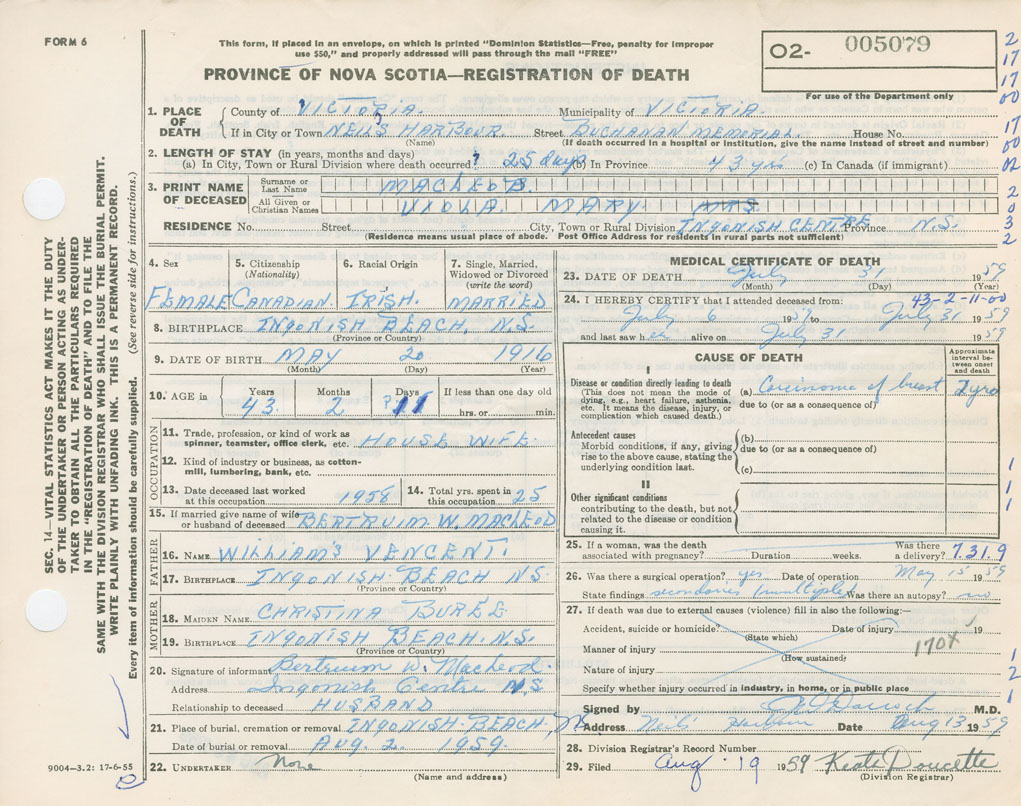 FORM 6
This form, if placed in an envelope, on which is printed "Dominion Statistics—Free, penalty for improper
use $50," and properly addressed will pass through the mail "FREE"
PROVINCE OF NOVA SCOTIA—REGISTRATION OF DEATH
O2- 005079
For use of the Department only
SEC. 14—VITAL STATISTICS ACT MAKES IT THE DUTY
OF THE UNDERTAKER OR PERSON ACTING AS UNDER-
TAKER TO OBTAIN ALL THE PARTICULARS REQUIRED
IN THE "REGISTRATION OF DEATH" AND TO FILE THE
SAME WITH THE DIVISION REGISTRAR WHO SHALL ISSUE THE BURIAL PERMIT.
WRITE PLAINLY WITH UNFADING INK. THIS IS A PERMANENT RECORD.
Every item of information should be carefully supplied. (See reverse side for instructions.)
1. PLACE OF DEATH
County of VICTORIA. Municipality of VICTORIA.
If in City or Town NEIL'S HARBOUR Street BUCHANAN MEMORIAL House No.
(Name) (If death occurred in a hospital or institution, give the name instead of street and number)
2. LENGTH OF STAY (in years, months and days)
(a) In City, Town or Rural Division where death occurred? 25 days (b) In Province 43 yrs (c) In Canada (if immigrant)
3. PRINT NAME OF DECEASED
Surname or Last Name MACLEOD
All Given or Christian Names VIOLA MARY MRS.
RESIDENCE No. Street City, Town or Rural Division INGONISH CENTRE Province N.S.
(Residence means usual place of abode. Post Office Address for residents in rural parts not sufficient)
4. Sex FEMALE
5. Citizenship (Nationality) CANADIAN.
6. Racial Origin IRISH.
7. Single, Married, Widowed or Divorced (write the word) MARRIED
8. BIRTHPLACE INGONISH BEACH, N.S.
(Province or Country)
9. DATE OF BIRTH MAY 20 1916
(Month) (Day) (Year)
10. AGE in Years 43 Months 2 Days 11 If less than one day old hrs. or min.
OCCUPATION
11. Trade, profession, or kind of work as spinner, teamster, office clerk, etc. HOUSE WIFE
12. Kind of industry or business, as cotton-mill, lumbering, bank, etc.
13. Date deceased last worked at this occupation 1958
14. Total yrs. spent in this occupation 25
15. If married give name of wife or husband of deceased BERTRUIM. W. MACLEOD
FATHER
16. NAME WILLIAM VENCENT.
17. BIRTHPLACE INGONISH BEACH N.S
(Province or Country)
MOTHER
18. MAIDEN NAME CHRISTINA
19. BIRTHPLACE INGONISH BEACH. N.S.
(Province or Country)
20. Signature of informant Bertruim W. MacLeod
Address Ingonish Centre N.S
Relationship to deceased HUSBAND
21. Place of burial, cremation or removal INGONISH. BEACH,
Date of burial or removal AUG. 2. 1959.
22. UNDERTAKER None
(Name and address)
9004—3.2: 17-6-55
MEDICAL CERTIFICATE OF DEATH
23. DATE OF DEATH July 31 1959
(Month) (Day) (Year)
43-2-11-00
24. I HEREBY CERTIFY that I attended deceased from:
July 6 1959 to July 31 1959
and last saw her alive on July 31 1959
CAUSE OF DEATH
Approximate interval between onset and death
I
Disease or condition directly leading to death
(This does not mean the mode of dying, e.g., heart failure, asthenia, etc. It means the disease, injury, or complication which caused death.)
(a) Carcinoma of breast 2 yrs
due to (or as a consequence of)
Antecedent causes
Morbid conditions, if any, giving rise to the above cause, stating the underlying condition last.
(b)
due to (or as a consequence of)
(c)
II
Other significant conditions
contributing to the death, but not related to the disease or condition causing it.
25. If a woman, was the death associated with pregnancy? Duration weeks. Was there a delivery? 7.31.9
26. Was there a surgical operation? yes Date of operation May 15 1959
State findings secondaries (multiple) Was there an autopsy? no
27. If death was due to external causes (violence) fill in also the following:—
Accident, suicide or homicide? Date of injury 19
(State which)
Manner of injury 170X
(How sustained)
Nature of injury
Specify whether injury occurred in industry, in home, or in public place
Signed by M.D.
Address Neil's Harbour Date Aug 13 1959
28. Division Registrar's Record Number
29. Filed Aug. 19 1959 Doucette
(Division Registrar)
2
17
17
00
17
00
02
2
0
3
2
1
1
1
1
2
1